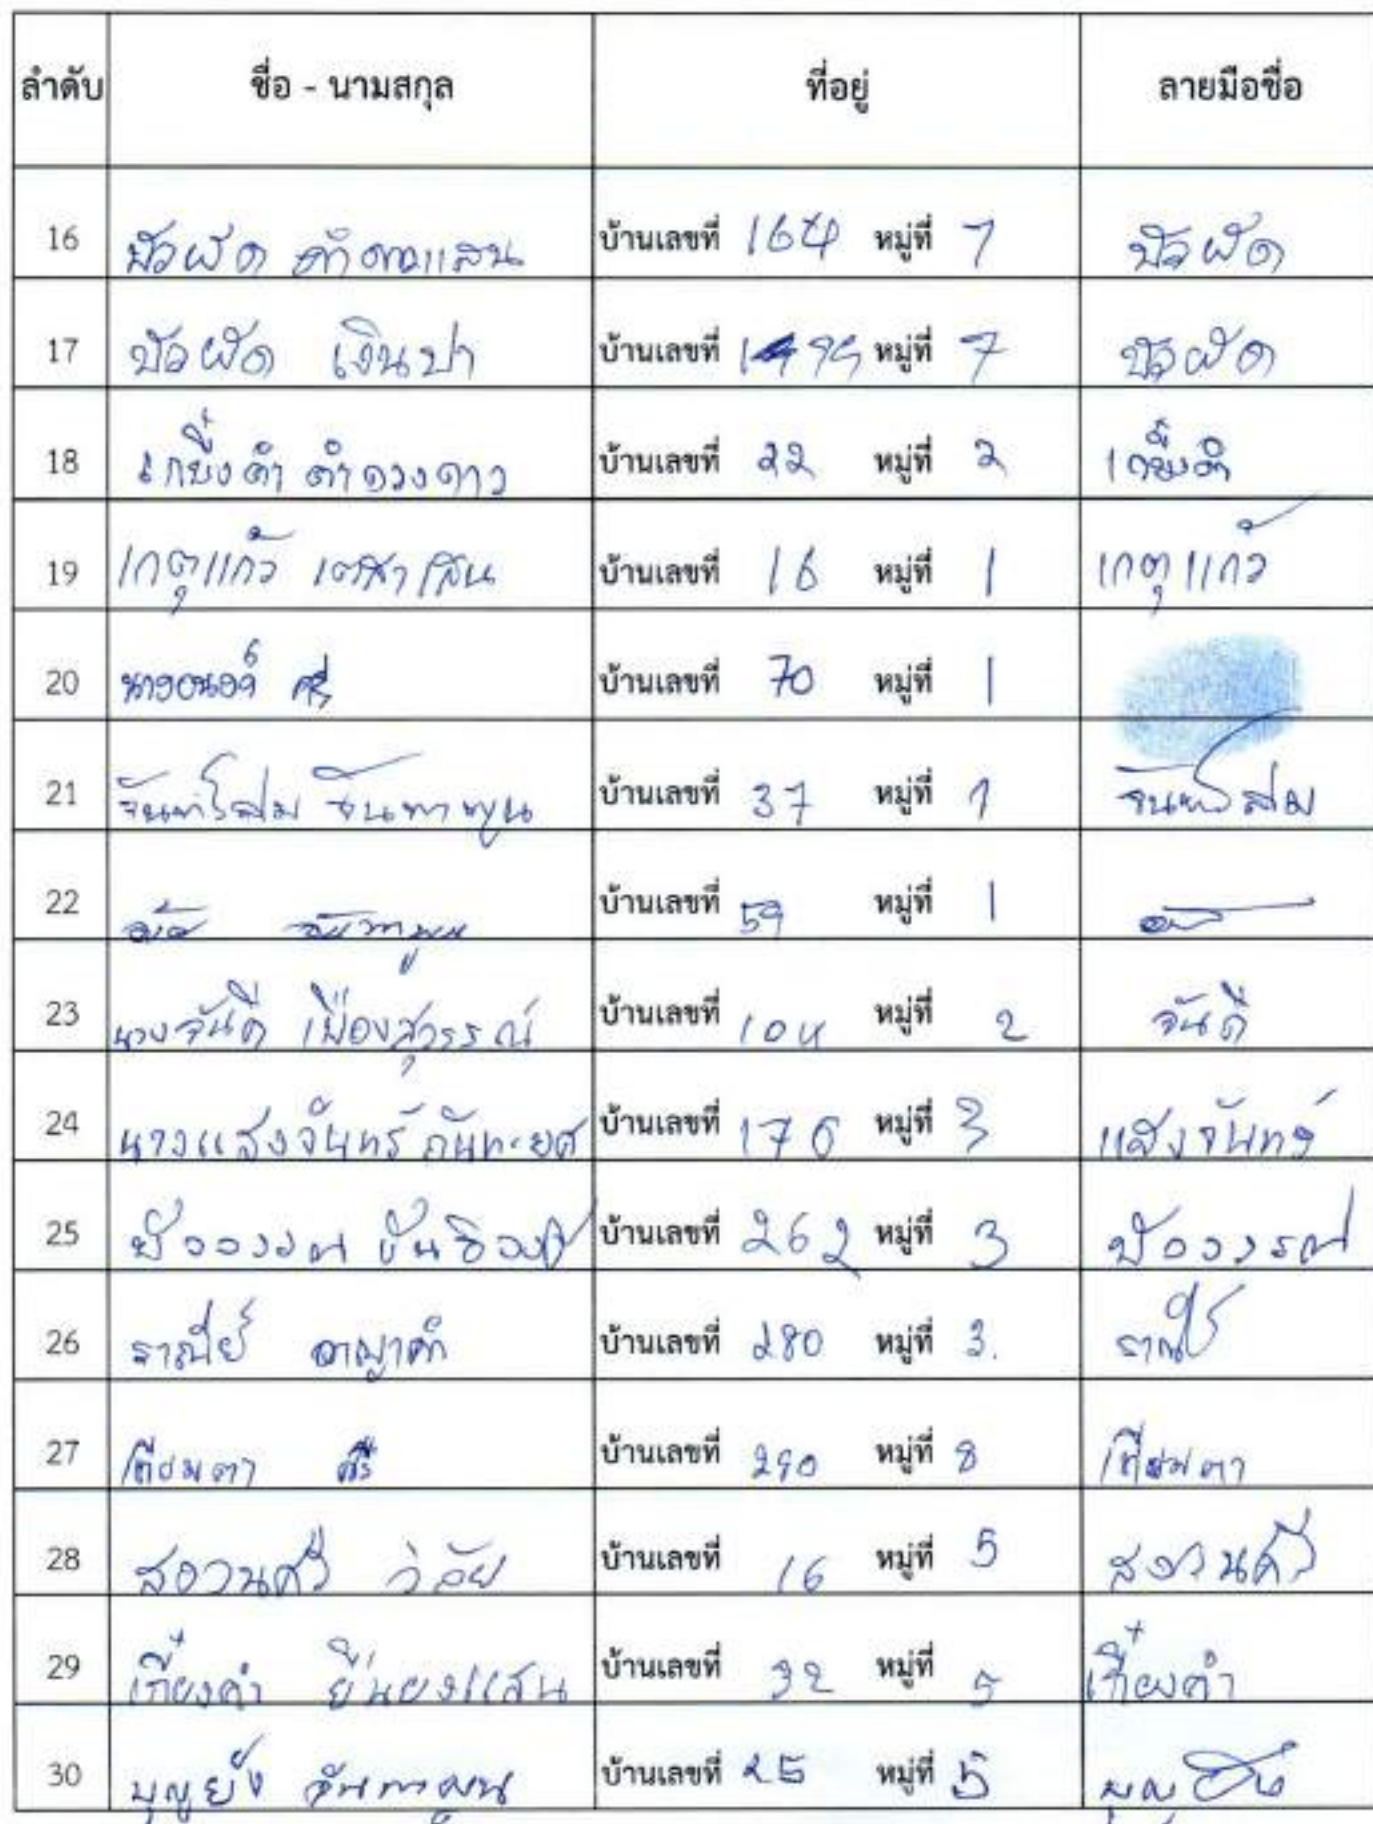 ลำดับ ชื่อ - นามสกุล ที่อยู่ ลายมือชื่อ
16 บัวผัด คำดาแสน บ้านเลขที่ 164 หมู่ที่ 7 บัวผัด
17 บัวผัด เงินปา บ้านเลขที่ หมู่ที่ 7 บัวผัด
18 คำดวงดาว บ้านเลขที่ 22 หมู่ที่ 2
19 เกตุแก้ว บ้านเลขที่ 16 หมู่ที่ 1 เกตุแก้ว
20 บ้านเลขที่ 70 หมู่ที่ 1
21 จันทร์โสม จันทาพูน บ้านเลขที่ 37 หมู่ที่ 1 จันทร์โสม
22 จันทาพูน บ้านเลขที่ 59 หมู่ที่ 1
23 นางจันดี เมืองสุวรรณ์ บ้านเลขที่ 104 หมู่ที่ 2 จันดี
24 นางแสงจันทร์ กันทะยศ บ้านเลขที่ 176 หมู่ที่ 3 แสงจันทร์
25 บ้านเลขที่ 262 หมู่ที่ 3
26 ราณีย์ อาญาคำ บ้านเลขที่ 280 หมู่ที่ 3.
27 เทียมตา ศรี บ้านเลขที่ 290 หมู่ที่ 8 เทียมตา
28 สงวนศรี วิลัย บ้านเลขที่ 16 หมู่ที่ 5 สงวนศรี
29 เกี๋ยงคำ บ้านเลขที่ 32 หมู่ที่ 5 เกี๋ยงคำ
30 บุญยัง จันทาพูน บ้านเลขที่ 25 หมู่ที่ 5